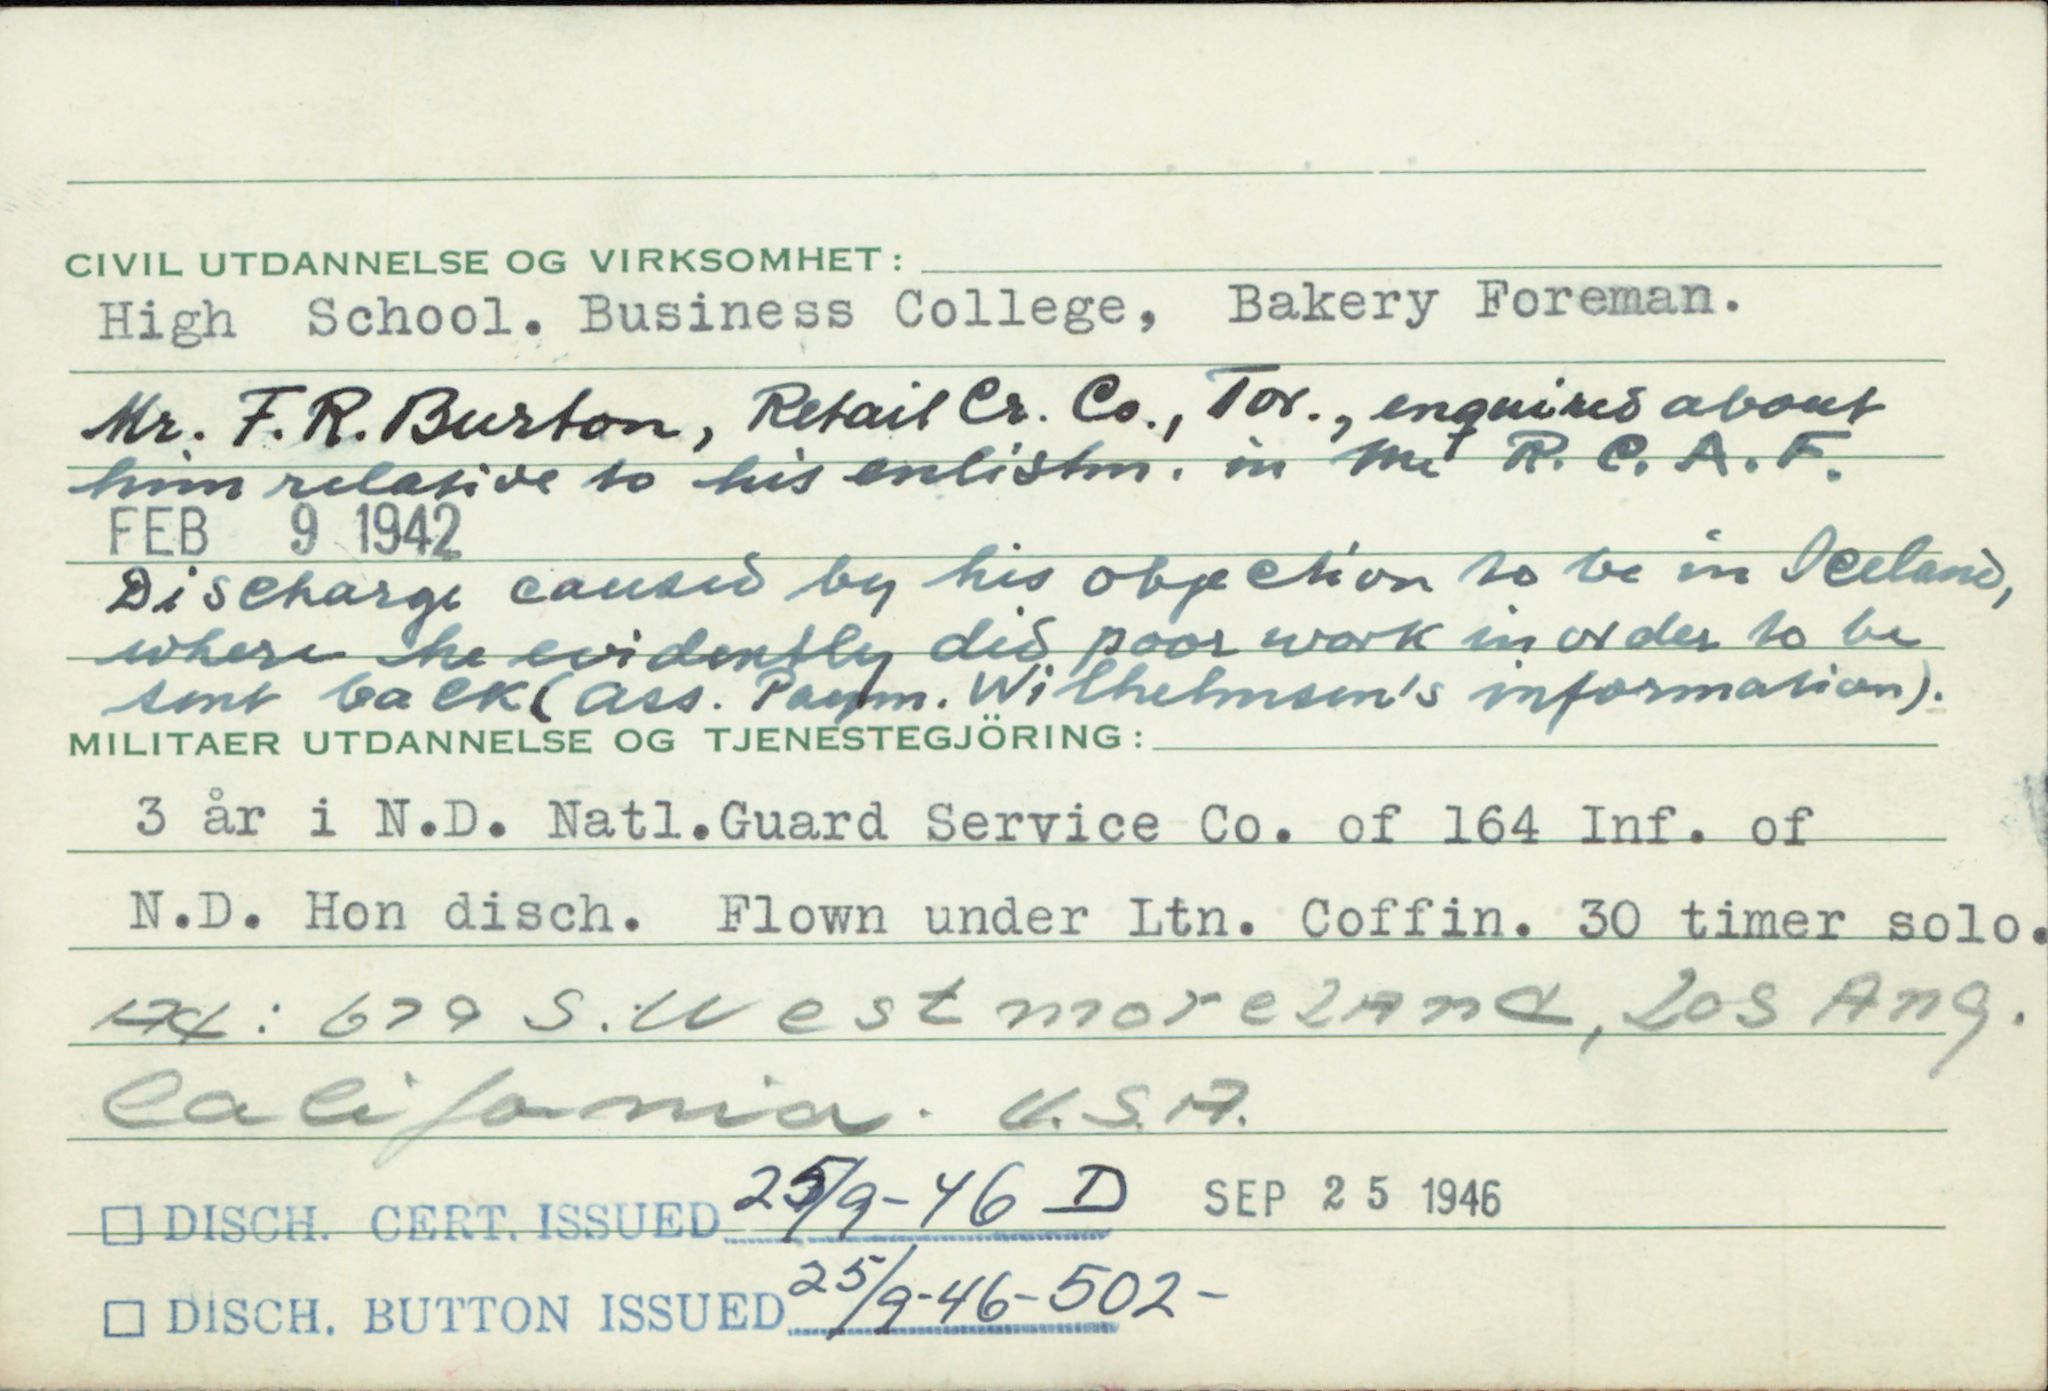 CIVIL UTDANNELSE OG VIRKSOMHET:
High School. Business College, Bakery Foreman.
Mr. F.R. Burton, Retail Cr. Co., Tor., enquired about
him relative to his enlistm. in the R.C.A.F.
FEB 9 1942
Discharge caused by his objection to be in Iceland,
where he evidently did poor work in order to be
sent back (Ass. Paym. Wilhelmsen's information).
MILITAER UTDANNELSE OG TJENESTEGJÖRING:
3 år i N.D. Natl.Guard Service Co. of 164 Inf. of
N.D. Hon disch. Flown under Ltn. Coffin. 30 timer solo.
: 679 S. Westmoreland, Los Ang.
California. U.S.A.
☐ DISCH. CERT. ISSUED 25/9-46 D SEP 25 1946
☐ DISCH. BUTTON ISSUED 25/9-46-502-